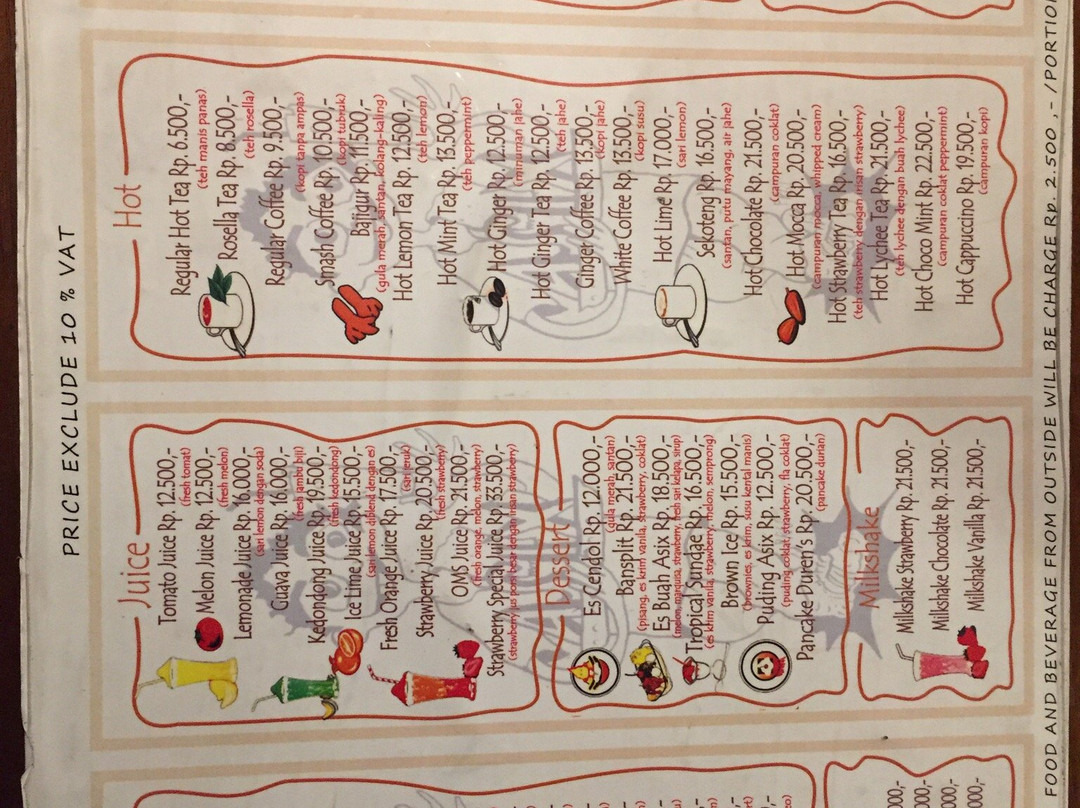 PRICE EXCLUDE 10 % VAT
Juice
Tomato Juice Rp. 12.500,-
(fresh tomat)
Melon Juice Rp. 12.500,-
(fresh melon)
Lemonade Juice Rp. 16.000,-
(sari lemon dengan soda)
Guava Juice Rp. 16.000,-
(fresh jambu biji)
Kedondong Juice Rp. 19.500,-
(fresh kedondong)
Ice Lime Juice Rp. 15.500,-
(sari lemon diblend dengan es)
Fresh Orange Juice Rp. 17.500,-
(sari jeruk)
Strawberry Juice Rp. 20.500,-
(fresh strawberry)
OMS Juice Rp. 21.500,-
(fresh orange, melon, strawberry)
Strawberry Special Juice Rp. 33.500,-
(strawberry jus porsi besar dengan irisan strawberry)
Dessert
Es Cendol Rp. 12.000,-
(gula merah, santan)
Bansplit Rp. 21.500,-
(pisang, es krim vanila, strawberry, coklat)
Es Buah Asix Rp. 18.500,-
(melon, marquisa, strawberry, fresh sari kelapa, sirup)
Tropical Sundae Rp. 16.500,-
(es krim vanila, strawberry, melon, semprong)
Brown Ice Rp. 15.500,-
(brownies, es krim, susu kental manis)
Puding Asix Rp. 12.500,-
(puding coklat, strawberry, fla coklat)
Pancake Duren's Rp. 20.500,-
(pancake durian)
Milkshake
Milkshake Strawberry Rp. 21.500,-
Milkshake Chocolate Rp. 21.500,-
Milkshake Vanilla Rp. 21.500,-
Hot
Regular Hot Tea Rp. 6.500,-
(teh manis panas)
Rosella Tea Rp. 8.500,-
(teh rosella)
Regular Coffee Rp. 9.500,-
(kopi tanpa ampas)
Smash Coffee Rp. 10.500,-
(kopi tubruk)
Bajigur Rp. 11.500,-
(gula merah, santan, kolang-kaling)
Hot Lemon Tea Rp. 12.500,-
(teh lemon)
Hot Mint Tea Rp. 13.500,-
(teh peppermint)
Hot Ginger Rp. 12.500,-
(minuman jahe)
Hot Ginger Tea Rp. 12.500,-
(teh jahe)
Ginger Coffee Rp. 13.500,-
(kopi jahe)
White Coffee Rp. 13.500,-
(kopi susu)
Hot Lime Rp. 17.000,-
(sari lemon)
Sekoteng Rp. 16.500,-
(santan, putu mayang, air jahe)
Hot Chocolate Rp. 21.500,-
(campuran coklat)
Hot Mocca Rp. 20.500,-
(campuran mocca, whipped cream)
Hot Strawberry Tea Rp. 16.500,-
(teh strawberry dengan irisan strawberry)
Hot Lychee Tea Rp. 21.500,-
(teh lychee dengan buah lychee)
Hot Choco Mint Rp. 22.500,-
(campuran coklat peppermint)
Hot Cappuccino Rp. 19.500,-
(campuran kopi)
FOOD AND BEVERAGE FROM OUTSIDE WILL BE CHARGE Rp. 2.500 ,- /PORTION